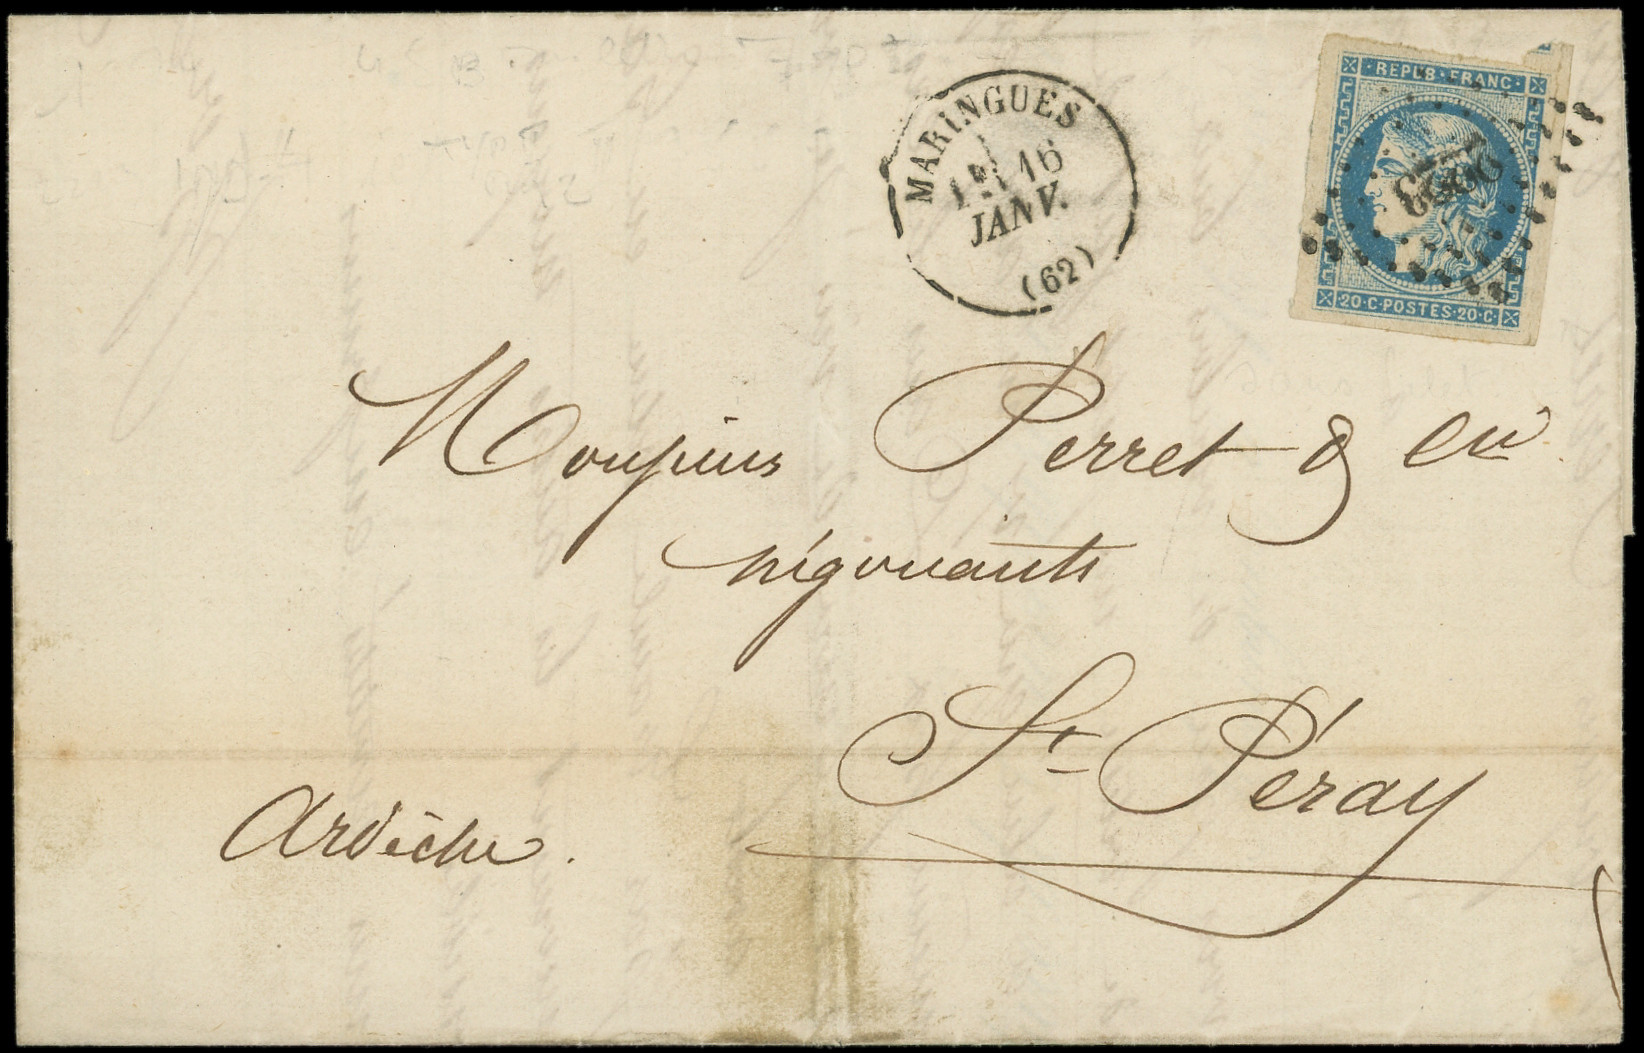 MARINGUES
16
JANV.
(62)
REPUB·FRANC·
20·C·POSTES·20·C·
Messieurs Perret & Cie
négociants
St Péray
Ardèche.